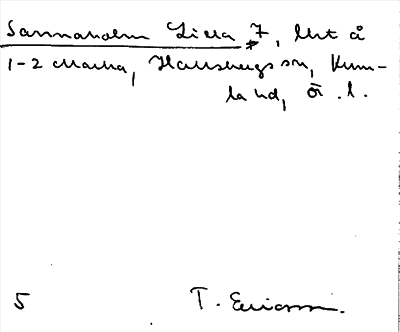 Sannaholm Lilla 7, litt å
1-2 Marka, Hallsbergs sn, Kum-
la hd, Ö .l.
5 T. Ericsson.